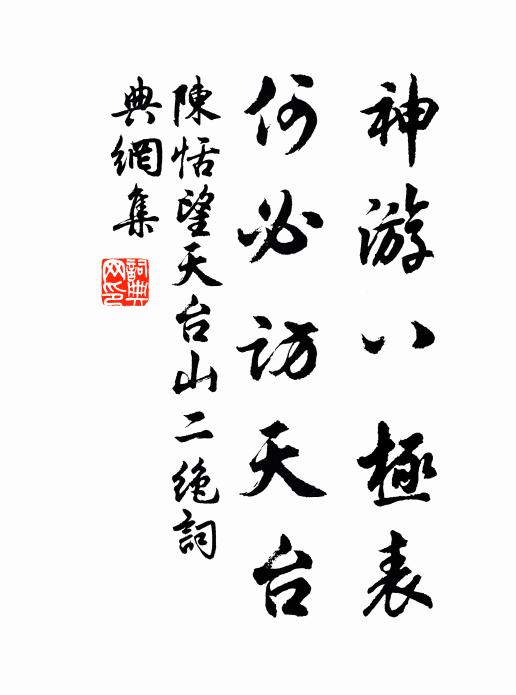 神游八極表
何必訪天台
陳恬望天台山二絶詞
典網集
詞典網印